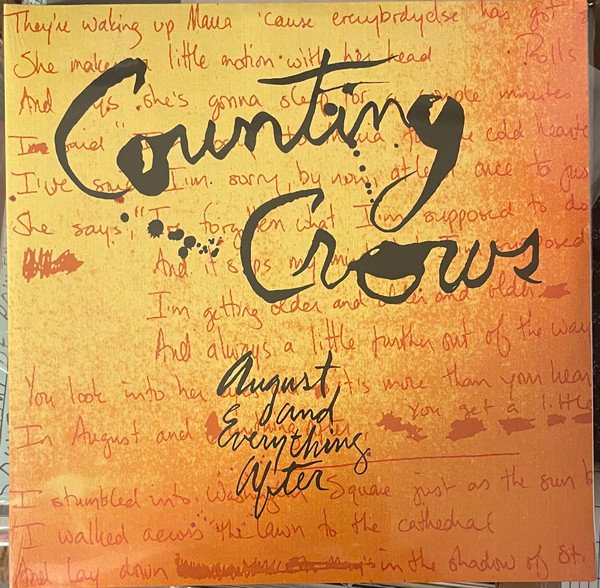 They're waking up Maria 'cause everybody else has got s
She makes a little motion with her head Rolls
And says she's gonna sleep for a couple minutes
I said " I'm to Maria for the cold hearte
I've said I'm sorry by now, at least once to jus
She says, "I've forgotten what I'm supposed to do
And it slips my mind supposed
I'm getting older and older and older
And always a little further out of the way
You look into her it's more than your hear
In August and everything after, You get a little
I stumbled into Washington Square just as the sun b
I walked across the lawn to the cathedral
And lay down in the shadow of St.
Counting
Crows
August
and
Everything
After